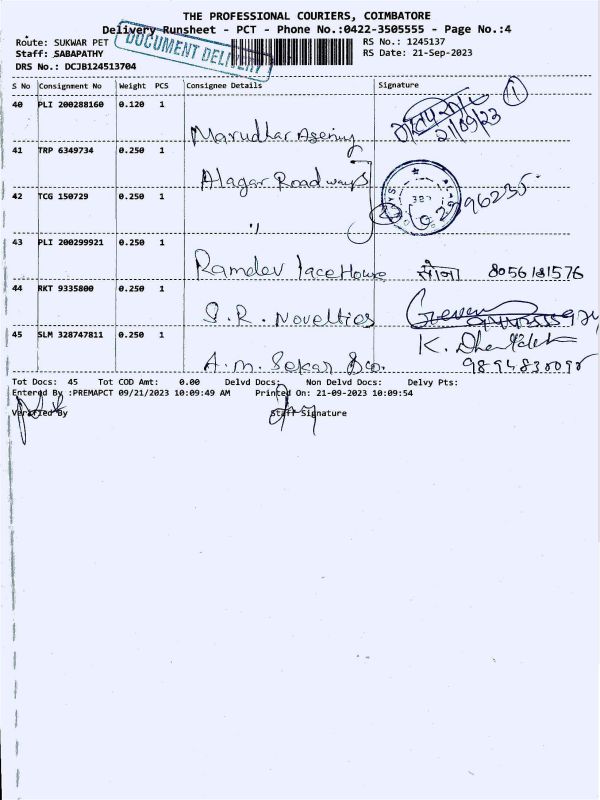 THE PROFESSIONAL COURIERS, COIMBATORE
Delivery Runsheet - PCT - Phone No.:0422-3505555 - Page No.:4
DOCUMENT DELIVERY
Route: SUKWAR PET
RS No.: 1245137
Staff: SABAPATHY
RS Date: 21-Sep-2023
DRS No.: DCJB124513704
S No Consignment No Weight PCS Consignee Details Signature
40 PLI 200288160 0.120 1
Marudhar Agency
21/09/23
1
41 TRP 6349734 0.250 1
Alagar Roadways
42 TCG 150729 0.250 1
"
2
43 PLI 200299921 0.250 1
Ramdev lace House सोना 8056181576
44 RKT 9335800 0.250 1
S.R. Novelties
45 SLM 328747811 0.250 1
A.m. Sekar &co.
Tot Docs: 45 Tot COD Amt: 0.00 Delvd Docs: Non Delvd Docs: Delvy Pts:
Entered By :PREMAPCT 09/21/2023 10:09:49 AM Printed On: 21-09-2023 10:09:54
Verified By Staff Signature